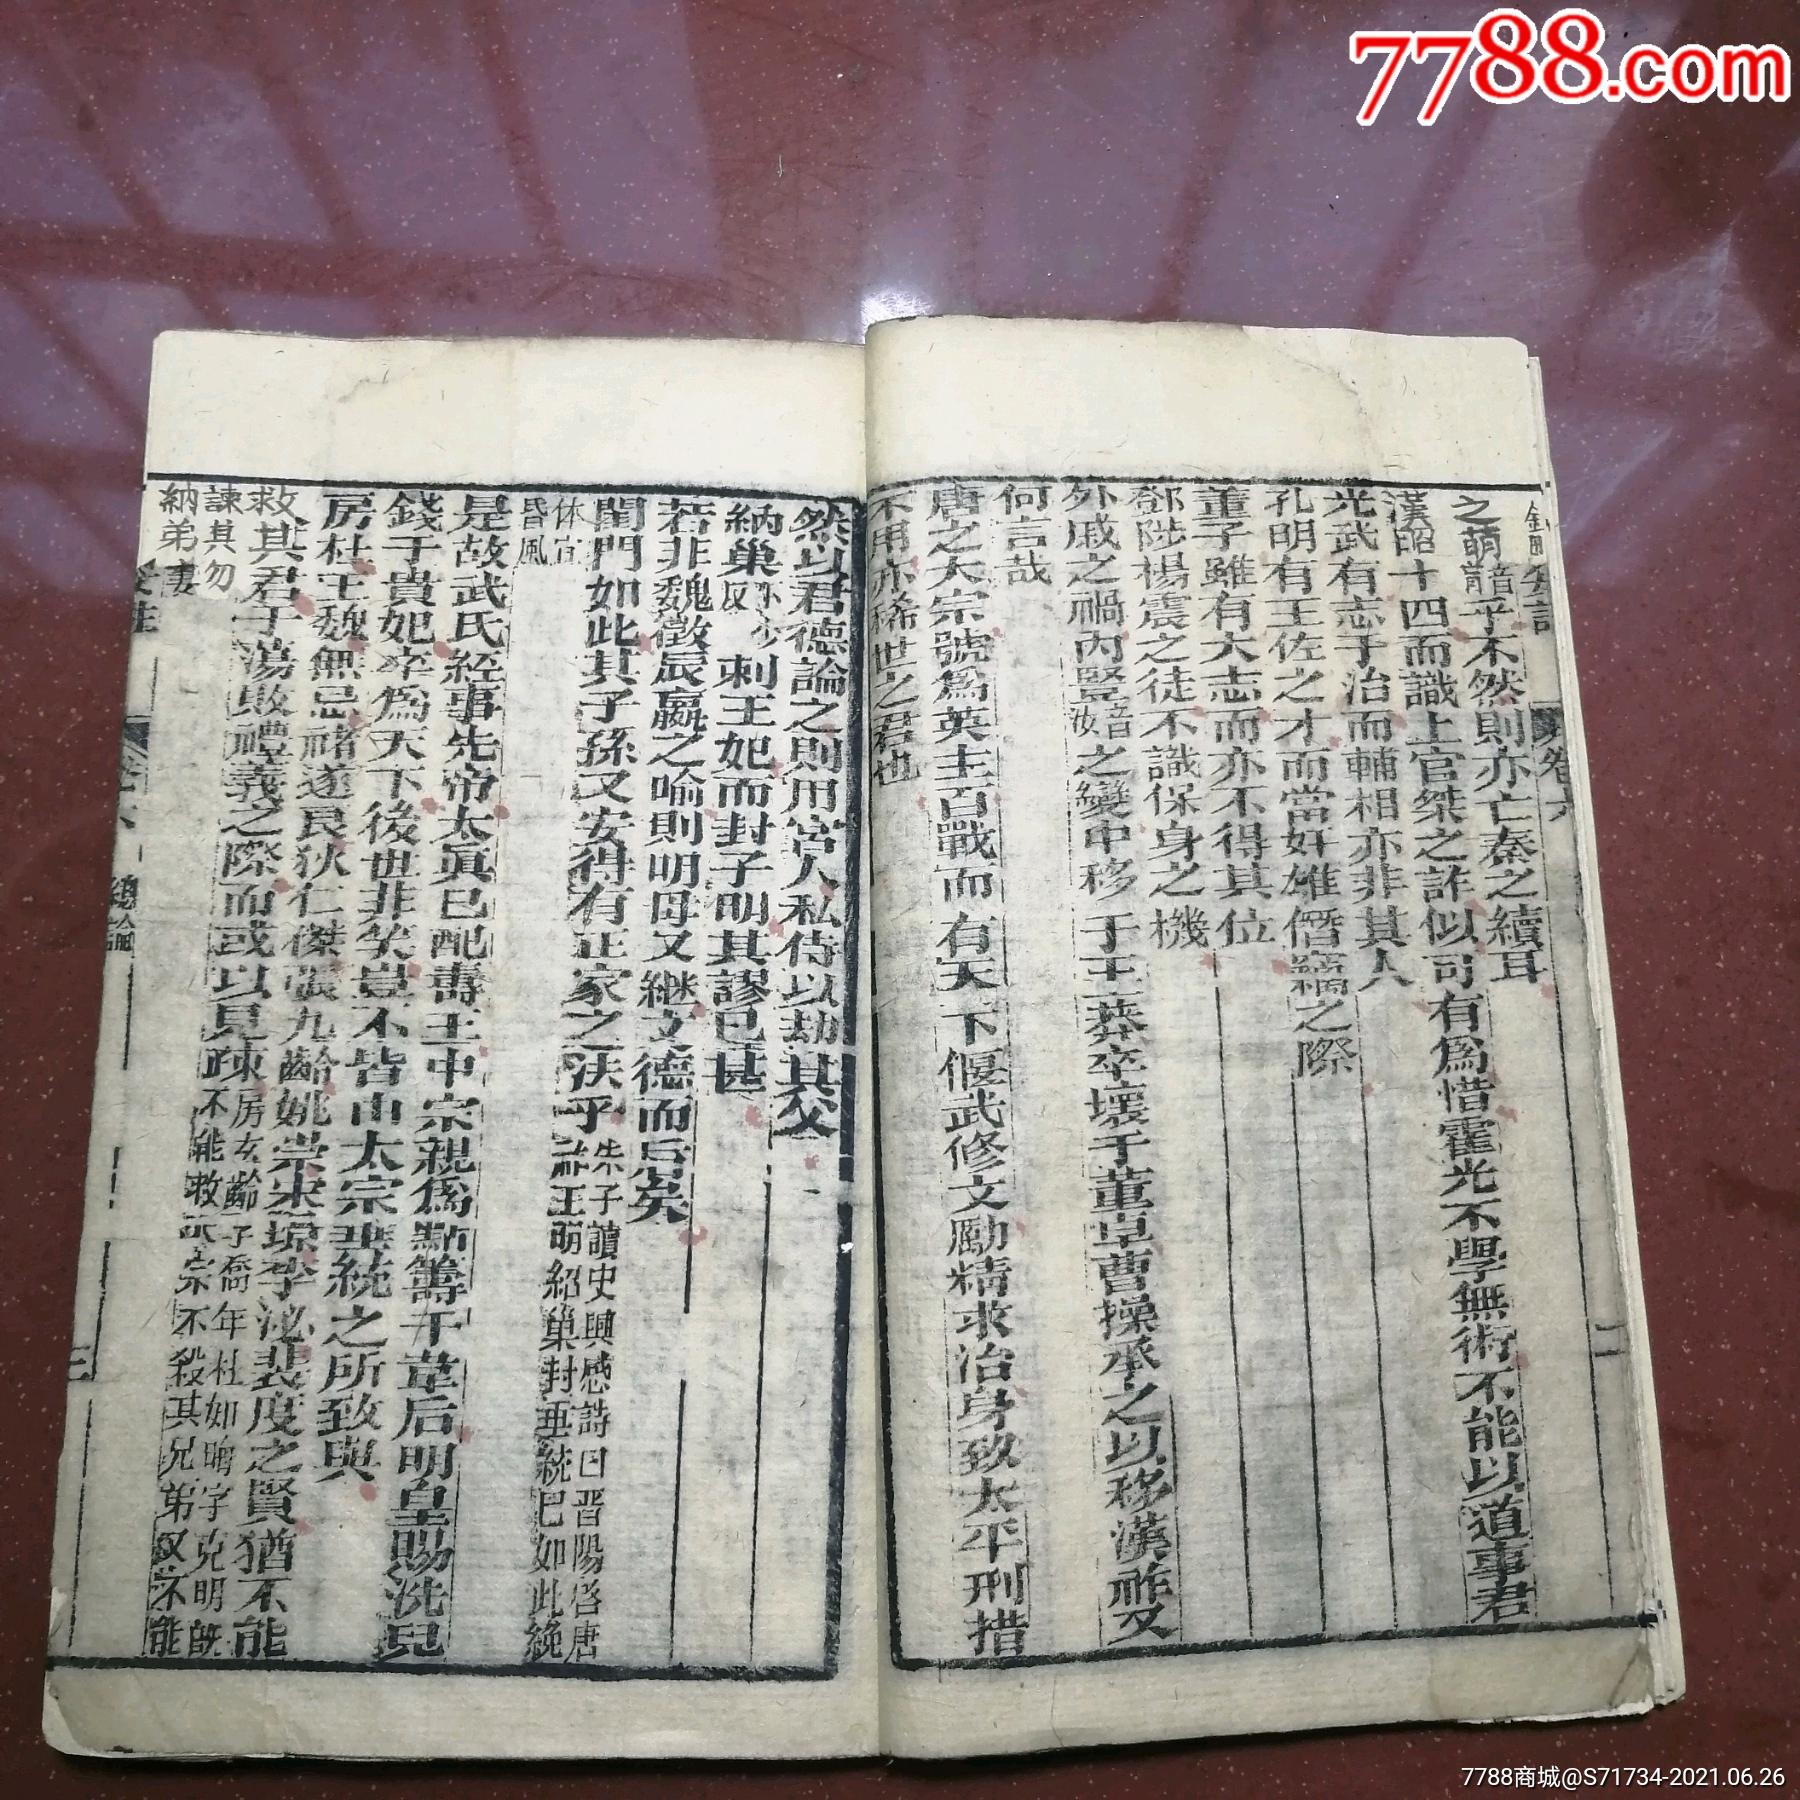 7788.com
卷六
二
之萌音蒙乎不然則亦亡秦之續耳
漢昭十四而識上官桀之詐似可有為惜霍光不學無術不能以道事君
光武有志于治而輔相亦非其人
孔明有王佐之才而當奸雄僭竊之際
董子雖有大志而亦不得其位
鄧陟楊震之徒不識保身之機
外戚之禍內豎音汝之變中移于王莽卒壞于董卓曹操承之以移漢祚又
何言哉
唐之太宗號為英主百戰而有天下偃武修文勵精求治身致太平刑措
不用亦稀世之君也
然以君德論之則用宮人私侍以劫其父
納巢刺王妃而封子明其謬已甚
若非魏徵辰嬴之喻則明母又繼文德而后矣
閨門如此其子孫又安得有正家之法乎朱子讀史興感詩曰晉陽啓唐
祚王明紹巢封垂統已如此繼
体宜
昏風
是故武氏經事先帝太眞已配壽王中宗親為點籌于韋后明皇賜洗兒
錢于貴妃卒為天下後世非笑豈不皆由太宗垂統之所致與
房杜王魏無忌褚遂良狄仁傑張九齡姚崇宋璟李泌裴度之賢猶不能
救其君于蕩敗禮義之際而或以見疎房玄齡字喬年杜如晦字克明既
不能救太宗不殺其兄弟又不能
諫其勿
納弟妻
總論
三
7788商城@S71734-2021.06.26